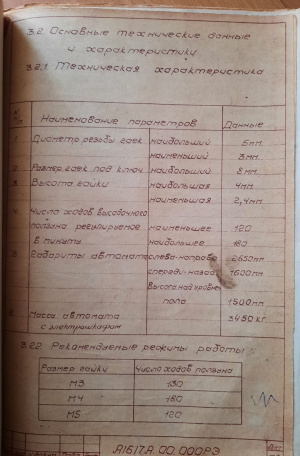 3.2. Основные технические данные
и характеристики
3.2.1. Техническая характеристика
Наименование параметров Данные
1 Диаметр резьбы гаек наибольший 5мм.
наименьший 3мм.
2 Размер гаек под ключ наибольший 8мм.
3 Высота гайки наибольшая 4мм.
наименьшая 2,4мм.
4 Число ходов высадочного
ползуна регулируемое наименьшее 120
в минуту наибольшее 180
5 Габариты автомата слева-направо 2650мм
спереди-назад 1600мм
высота над уровнем
пола 1500мм
Масса автомата 3450кг
с электрошкафом
3.2.2. Рекомендуемые режимы работы:
Размер гайки Число ходов ползуна
М3 180
М4 180
М5 120
А1617.А.00.000РЭ
Лист